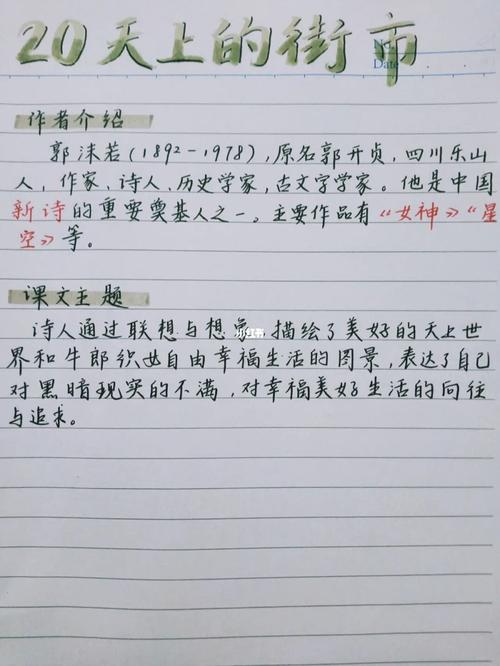 20天上的街市
No.
Date
作者介绍
郭沫若(1892-1978),原名郭开贞,四川乐山
人,作家、诗人、历史学家,古文字学家。他是中国
新诗的重要奠基人之一。主要作品有《女神》《星
空》等。
课文主题
诗人通过联想与想象,描绘了美好的天上世
界和牛郎织女自由幸福生活的图景,表达了自己
对黑暗现实的不满,对幸福美好生活的向往
与追求。
小红书